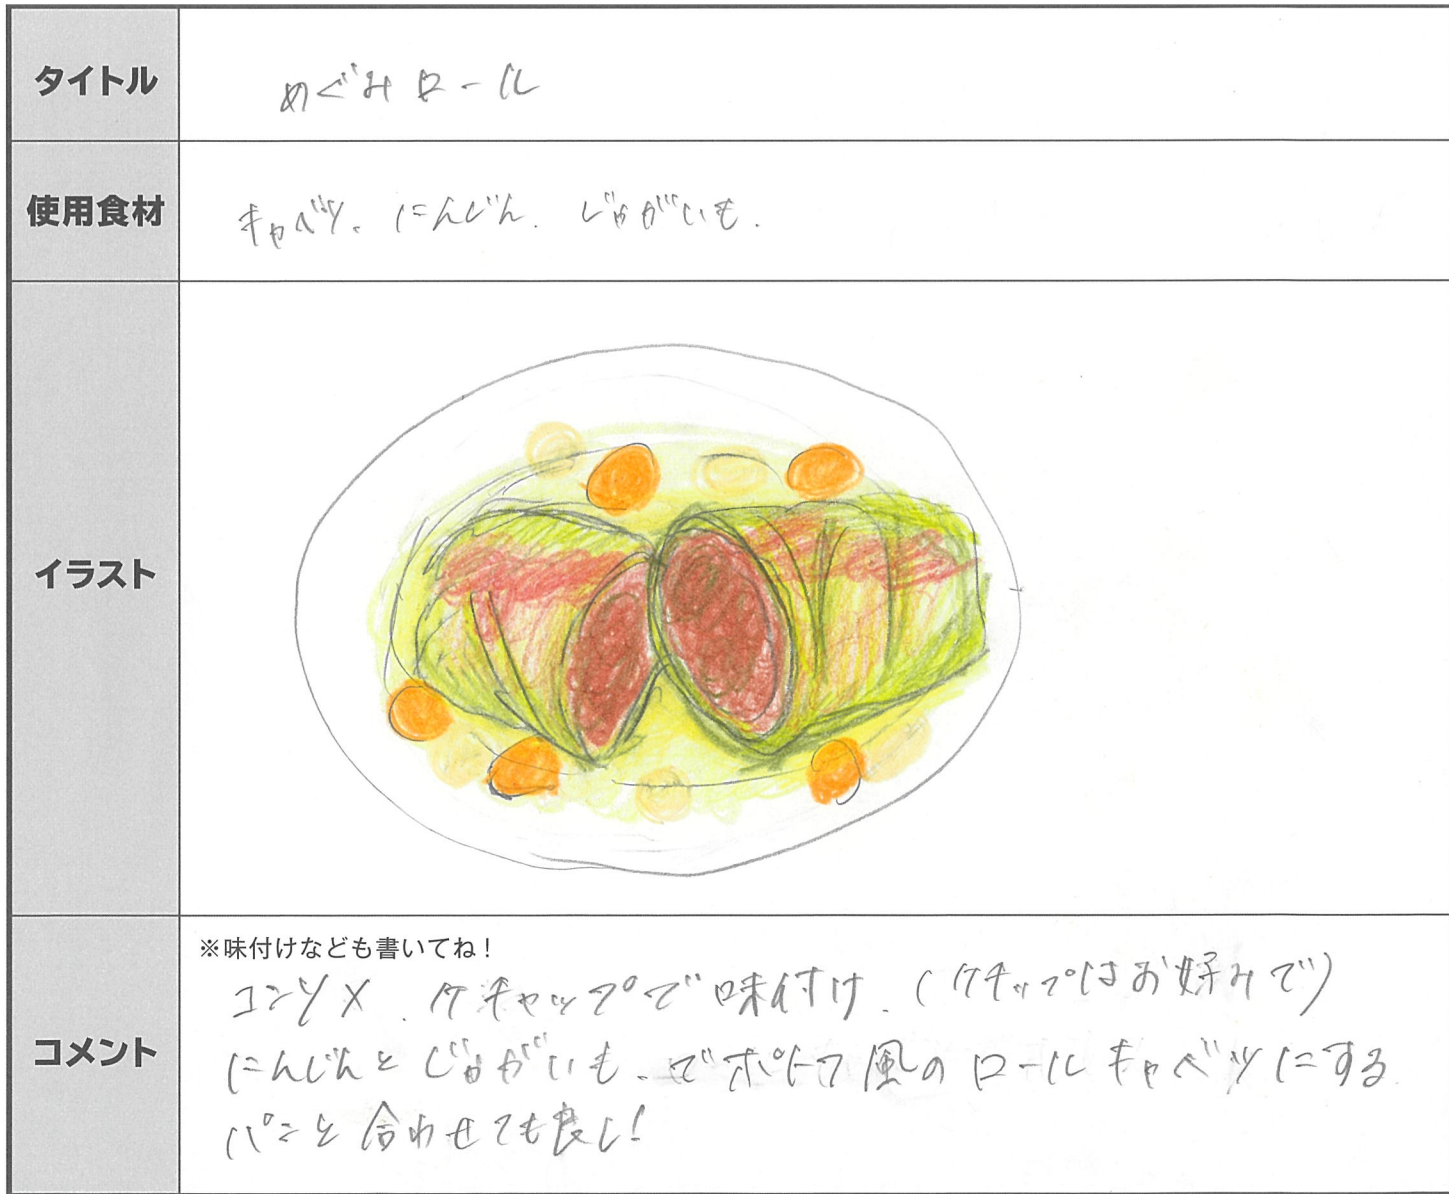 タイトル
めぐみロール
使用食材
キャベツ、にんじん、じゃがいも、
イラスト
コメント
※味付けなども書いてね!
コンソメ、ケチャップで味付け、(ケチャップはお好みで)
にんじんとじゃがいも、でポトフ風のロールキャベツにする
パンと合わせても良し!